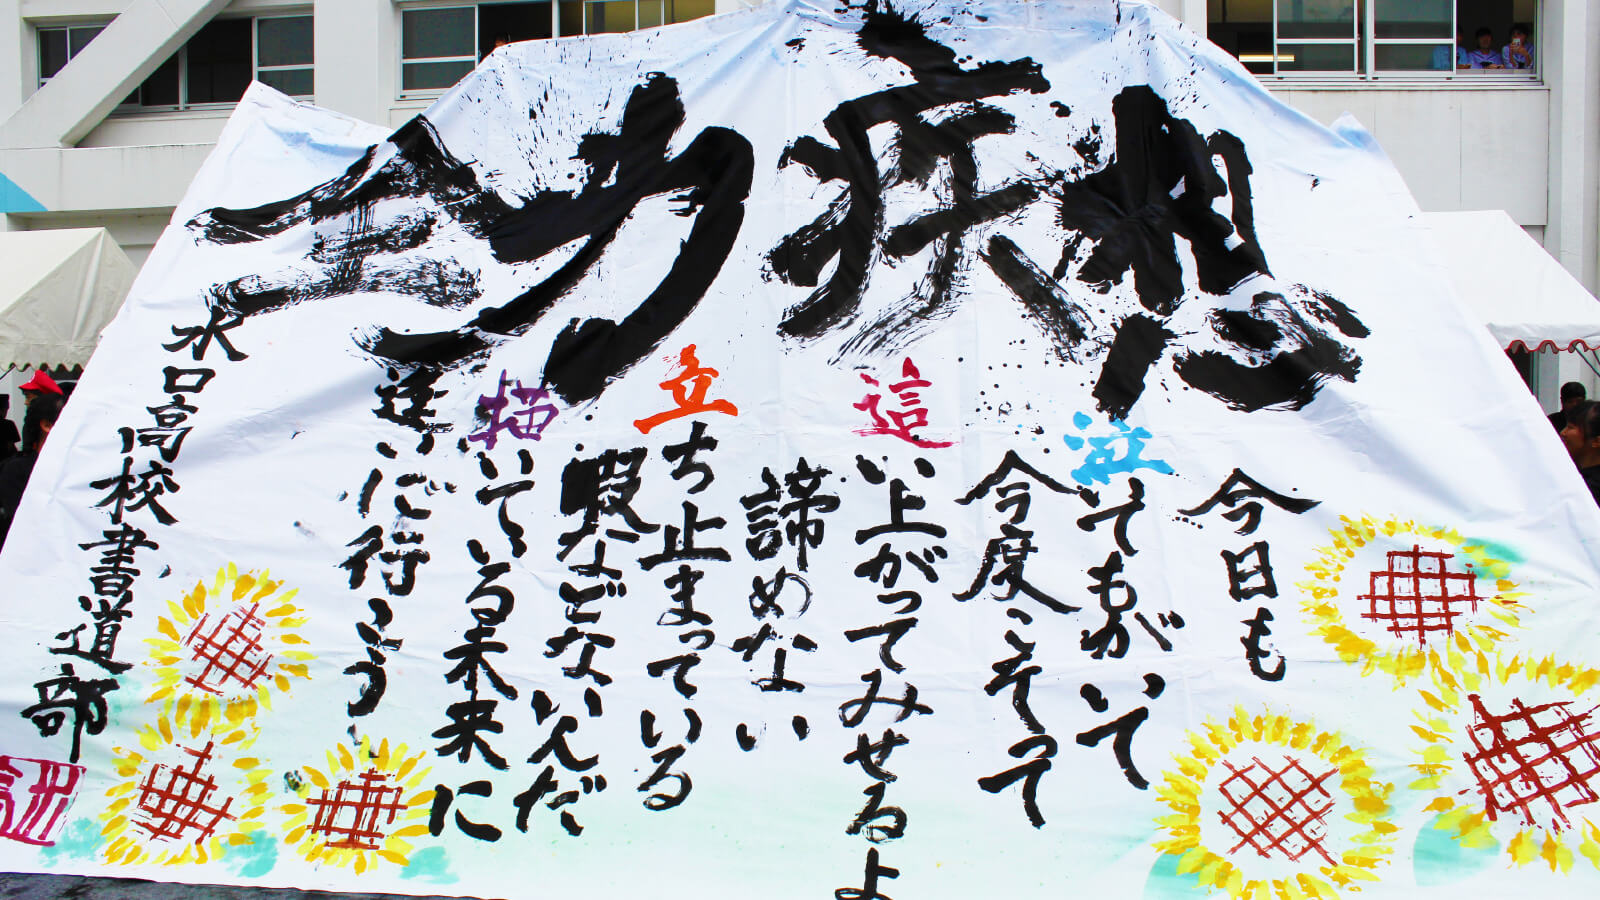 想疾
今日も
泣いてもがいて
今度こそって
這い上がってみせるよ
諦めない
立ち止まっている
暇などないんだ
描いている未来に
逢いに行こう
水口高校書道部